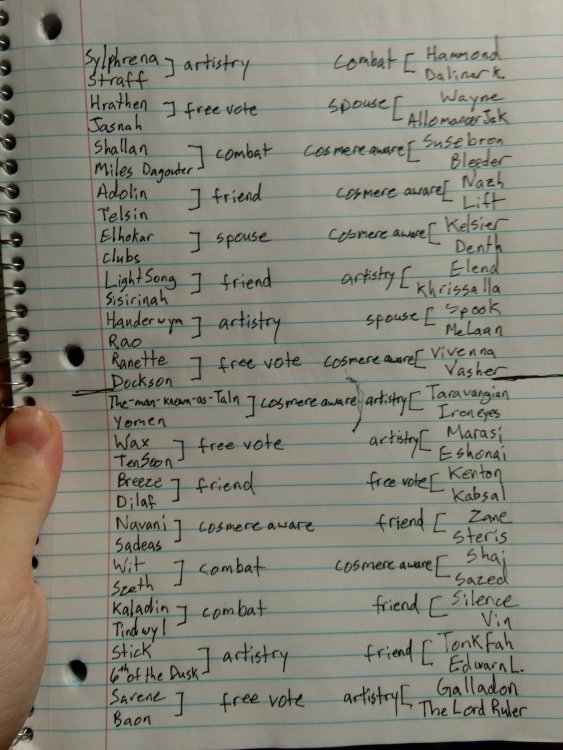 Sylphrena
Straff
artistry
Hrathen
Jasnah
free vote
Shallan
Miles Dagouter
combat
Adolin
Telsin
friend
Elhokar
Clubs
spouse
LightSong
Sisirinah
friend
Handerwym
Rao
artistry
Ranette
Dockson
free vote
The-man-known-as-Taln
Yomen
cosmere aware
Wax
TenSoon
free vote
Breeze
Dilaf
friend
Navani
Sadeas
cosmere aware
Wit
Szeth
combat
Kaladin
Tindwyl
combat
Stick
6th of the Dusk
artistry
Sarene
Baon
free vote
combat
Hammond
Dalinar K
spouse
Wayne
Allomancer Jak
cosmere aware
Susebron
Bleeder
cosmere aware
Nazh
Lift
cosmere aware
Kelsier
Denth
artistry
Elend
Khrissalla
spouse
Spook
MeLaan
cosmere aware
Vivenna
Vasher
artistry
Taravangian
Ironeyes
artistry
Marasi
Eshonai
free vote
Kenton
Kabsal
friend
Zane
Steris
cosmere aware
Shai
Sazed
friend
Silence
Vin
friend
Tonk Fah
Edwarn L.
artistry
Galladon
The Lord Ruler